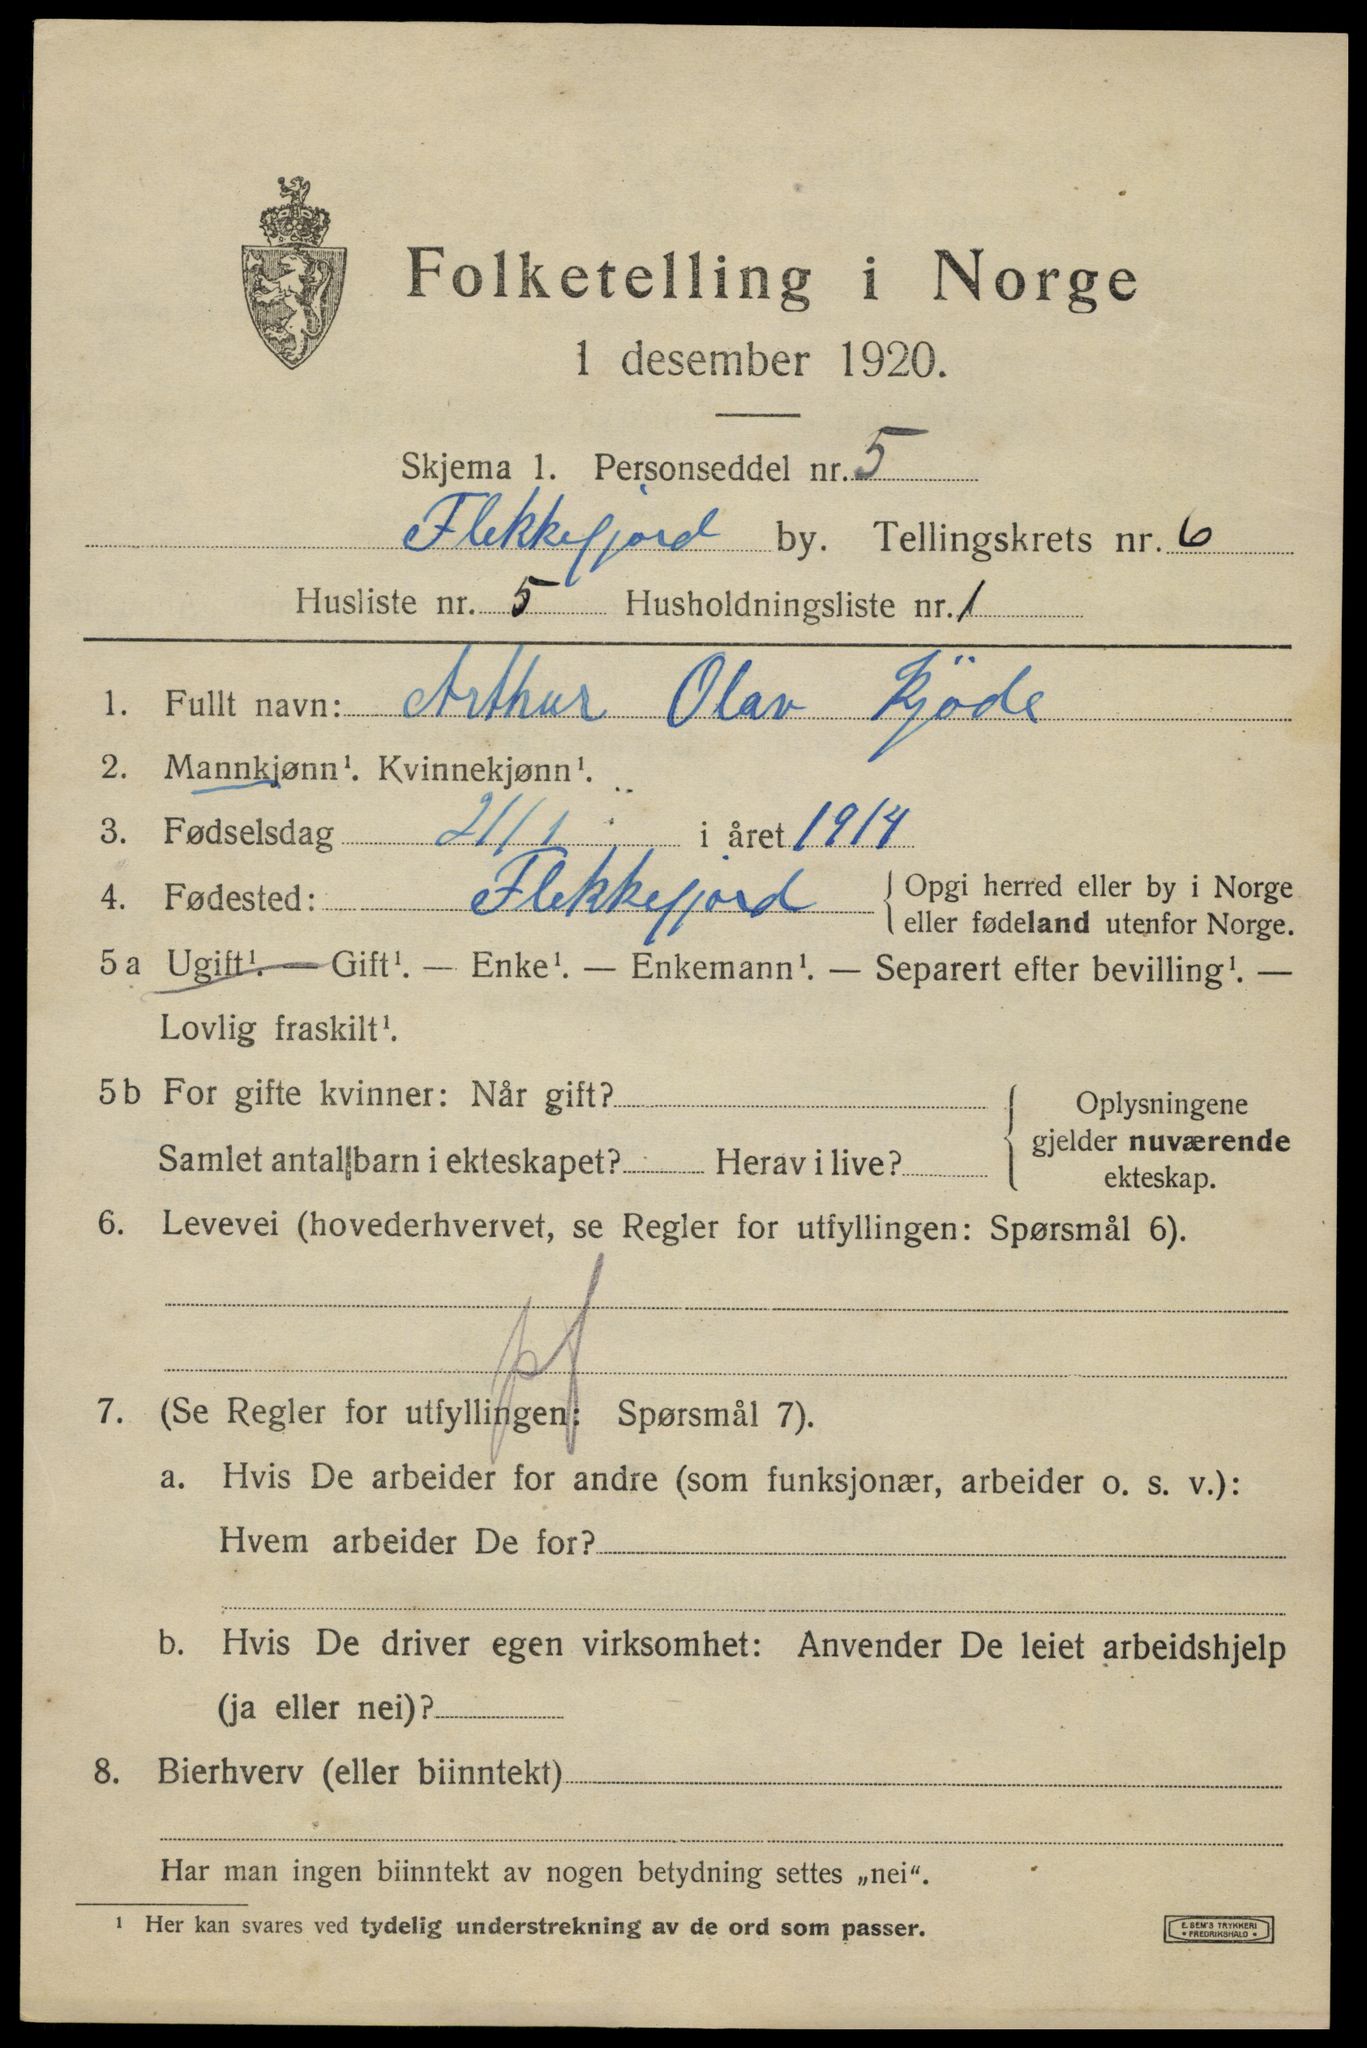 Folketelling i Norge
1 desember 1920.
Skjema 1. Personseddel nr. 5
Flekkefjord by. Tellingskrets nr. 6
Husliste nr. 5 Husholdningsliste nr. 1
1. Fullt navn: Arthur Olav Kjöde
2. Mannkjønn¹. Kvinnekjønn¹.
3. Fødselsdag 21/1 i året 1914
4. Fødested: Flekkefjord { Opgi herred eller by i Norge
eller fødeland utenfor Norge.
5 a Ugift¹. — Gift¹. — Enke¹. — Enkemann¹. — Separert efter bevilling¹. —
Lovlig fraskilt¹.
5 b For gifte kvinner: Når gift?
Samlet antall barn i ekteskapet? Herav i live?
{ Oplysningene
gjelder nuværende
ekteskap.
6. Levevei (hovederhvervet, se Regler for utfyllingen: Spørsmål 6).
pf
7. (Se Regler for utfyllingen: Spørsmål 7).
a. Hvis De arbeider for andre (som funksjonær, arbeider o. s. v.):
Hvem arbeider De for?
b. Hvis De driver egen virksomhet: Anvender De leiet arbeidshjelp
(ja eller nei)?
8. Bierhverv (eller biinntekt)
Har man ingen biinntekt av nogen betydning settes „nei“.
¹ Her kan svares ved tydelig understrekning av de ord som passer.
E. SEM'S TRYKKERI
• FREDRIKSHALD •